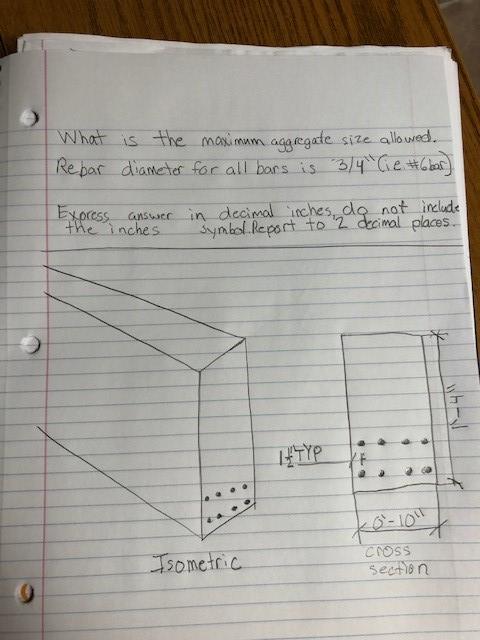 What is the maximum aggregate size allowed.
Rebar diameter for all bars is 3/4" (i.e #6 bar)
Express answer in decimal inches, do not include
the inches symbol. Report to 2 decimal places.
1½" TYP
1'-4"
0'-10"
Isometric
cross
section